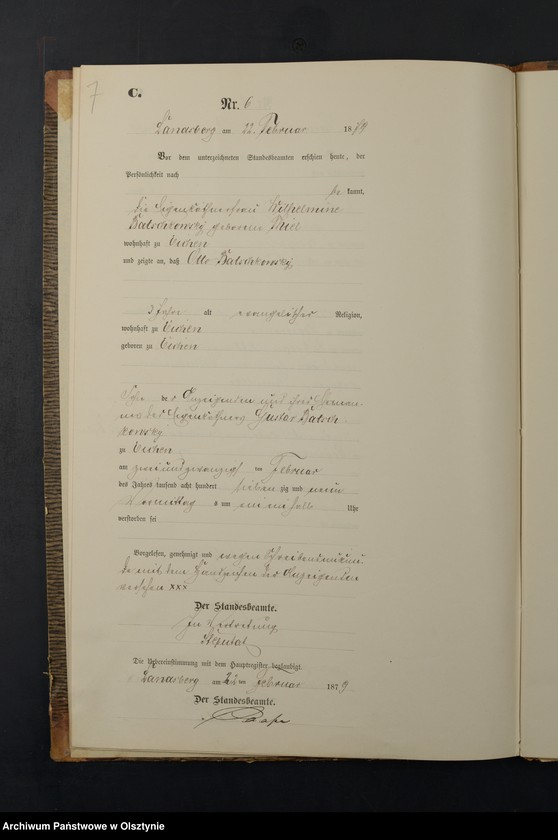 7
C.
Nr. 6
Landsberg am 22. Februar 1879
Vor dem unterzeichneten Standesbeamten erschien heute, der
Persönlichkeit nach
be kannt,
die Eigenkäthnerfrau Wilhelmine
Batschkowsky geborene Thiel
wohnhaft zu Eichen
und zeigte an, daß Otto Batschkowsky,
3 Jahr alt evangelischer Religion,
wohnhaft zu Eichen
geboren zu Eichen
Sohn der Anzeigenden und ihres Eheman
nes des Eigenkäthners Gustav Batsch
kowsky
zu Eichen
am zweiundzwanzigsten Februar
des Jahres tausend acht hundert sieben zig und neun
Vormittag s um ein halb Uhr
verstorben sei
Vorgelesen, genehmigt und wegen Schreibensunkun
de mit dem Handzeichen der Anzeigenden
versehen xxx
Der Standesbeamte.
In Vertretung
Die Uebereinstimmung mit dem Hauptregister beglaubigt.
Landsberg am ten Februar 1879
Der Standesbeamte.
Archiwum Państwowe w Olsztynie